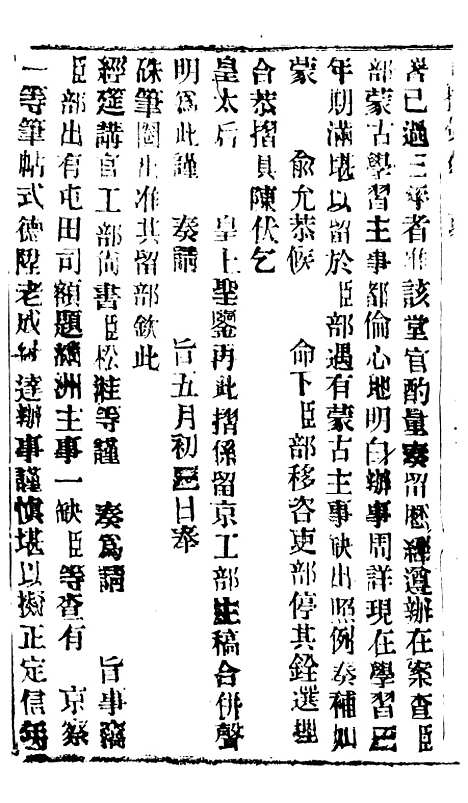 署已過三年者准該堂官酌量奏留歷經遵辦在案查臣
部蒙古學習主事都倫心地明白辦事周詳現在學習已
年期滿堪以留於臣部遇有蒙古主事缺出照例奏補如
蒙 俞允恭候 命下臣部移咨吏部停其銓選理
合恭摺具陳伏乞
皇太后 皇上聖鑒再此摺係留京工部主稿合併聲
明為此謹 奏請 旨五月初三日奉
硃筆圈出准其留部欽此
經筵講官工部尚書臣松溎等謹 奏為請 旨事竊
臣部出有屯田司額題滿洲主事一缺臣等查有 京察
一等筆帖式德陞老成 達辦事謹慎堪以擬正定信